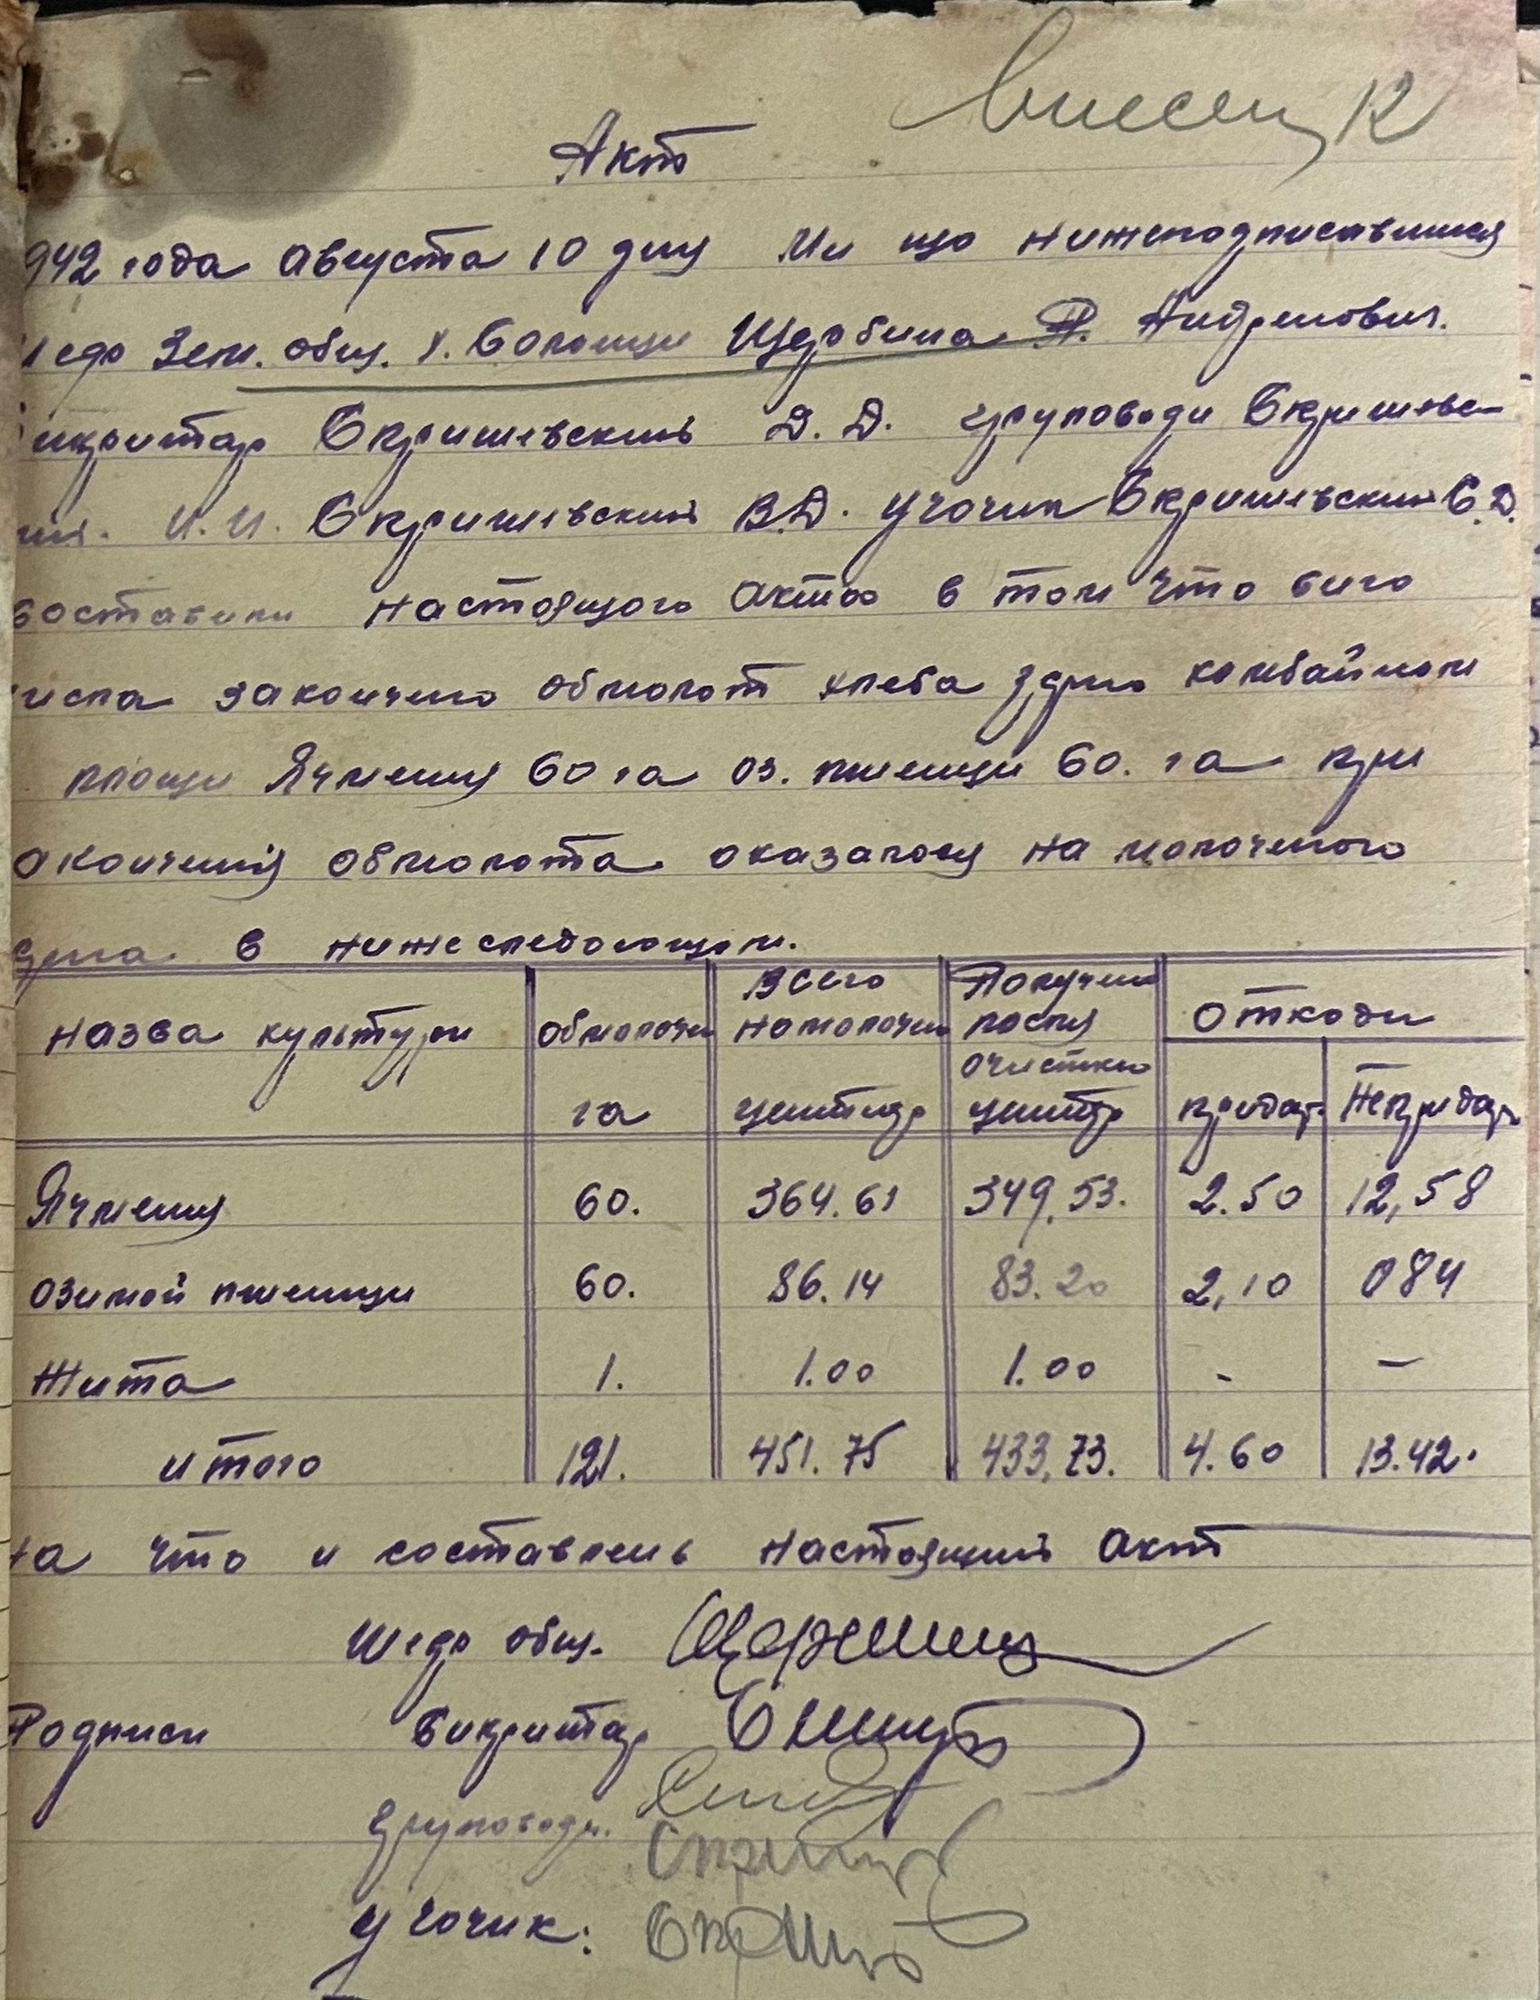 Акт
942 года Августа 10 дня Ми що нижеподписавшися
Зем. общ. х. Солонци Щербина П. Андреевич.
икритар Скришевский Д.Д. груповоди Скришевс-
кий. И.И. Скришевский В.Д. учочик Скришевский С.Д.
составили настоящого Акта в том что сиго
числа закончено обмолот хлеба зерно комбайном
площи Ячменя 60 га оз. пшеници 60. га при
окончения обмолота оказалося намолоченого
зерна в нижеследующем.
назва культури обмолочен га Всего намолочен центнер Получен после очистки центр отходи придат. Непридат
Ячменя 60. 364.61 349,53. 2.50 12,58
озимой пшеници 60. 86.14 83.20 2,10 084
Жита 1. 1.00 1.00 - —
итого 121. 451.75 433,73. 4.60 13.42.
на что и составлень настоящий Акт
Шедр общ.
Подписи Сикритар
Груповоди.
Учочик: